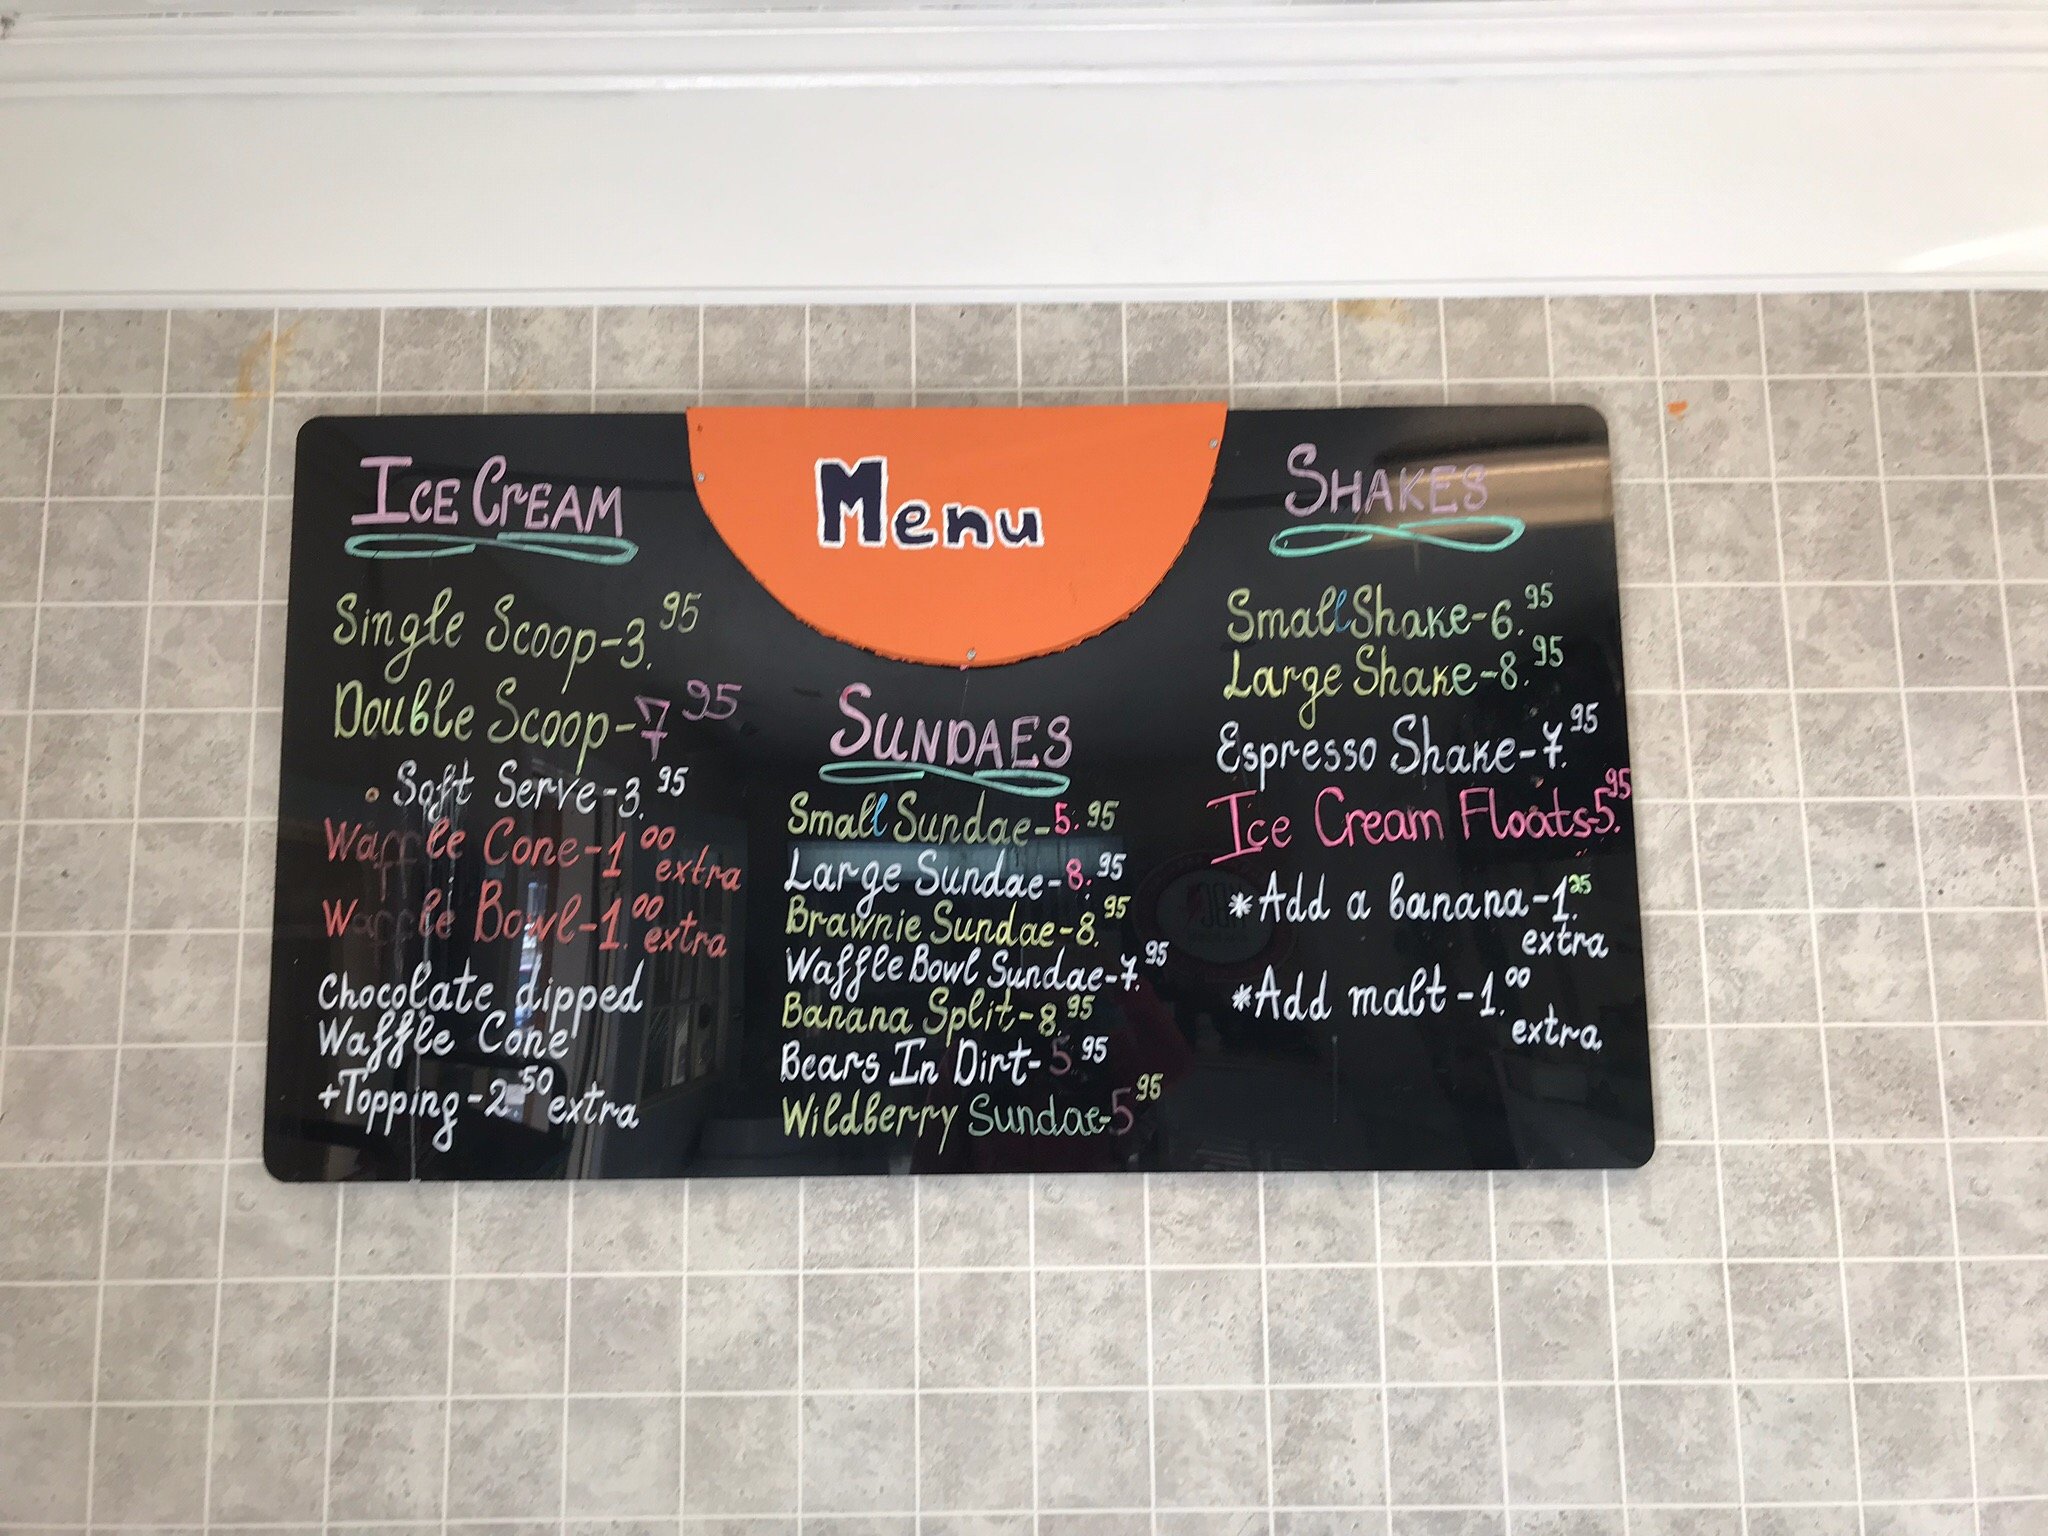 Menu
ICE CREAM
Single Scoop-3.95
Double Scoop-7 95
Soft Serve-3.95
Waffle Cone-1 00 extra
Waffle Bowl-1.00 extra
Chocolate dipped
Waffle Cone
+Topping-2.50 extra
SUNDAES
Small Sundae-5.95
Large Sundae-8.95
Brawnie Sundae-8.95
Waffle Bowl Sundae-7.95
Banana Split-8.95
Bears In Dirt-5 95
Wildberry Sundae-5 95
SHAKES
Small Shake-6.95
Large Shake-8.95
Espresso Shake-7.95
Ice Cream Floats-5.95
*Add a banana-1.25
extra
*Add malt-1.00
extra